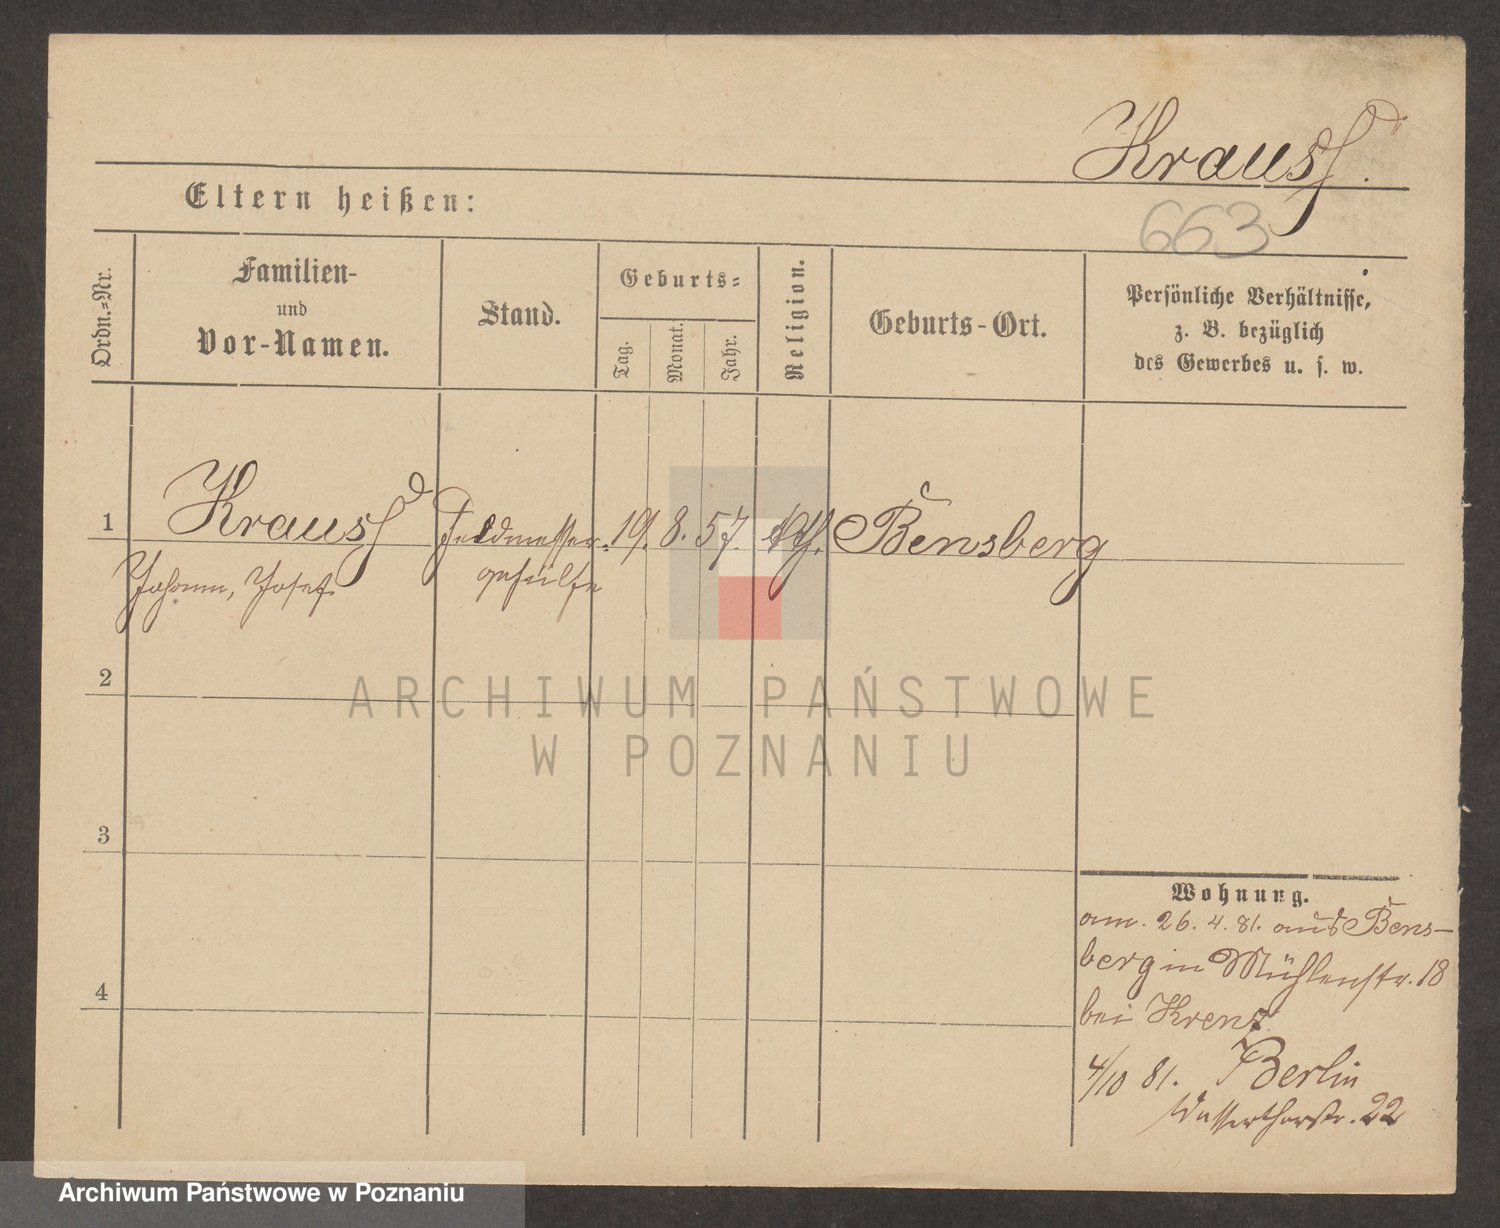 Krauss.
663
Eltern heißen:
Ordn.=Nr.
Familien-
und
Vor-Namen.
Stand.
Geburts=
Tag.
Monat.
Jahr.
Religion.
Geburts-Ort.
Persönliche Verhältnisse,
z. B. bezüglich
des Gewerbes u. s. w.
1
Krauss
Johann, Josef
Feldmesser=
gehülfe
19.
8.
57.
kth.
Bensberg
2
ARCHIWUM PAŃSTWOWE
W POZNANIU
3
4
Wohnung.
am. 26. 4. 81. aus Bens-
berg in Mühlenstr. 18
bei Krenz
4/10 81. Berlin
Wasserthorstr. 22
Archiwum Państwowe w Poznaniu